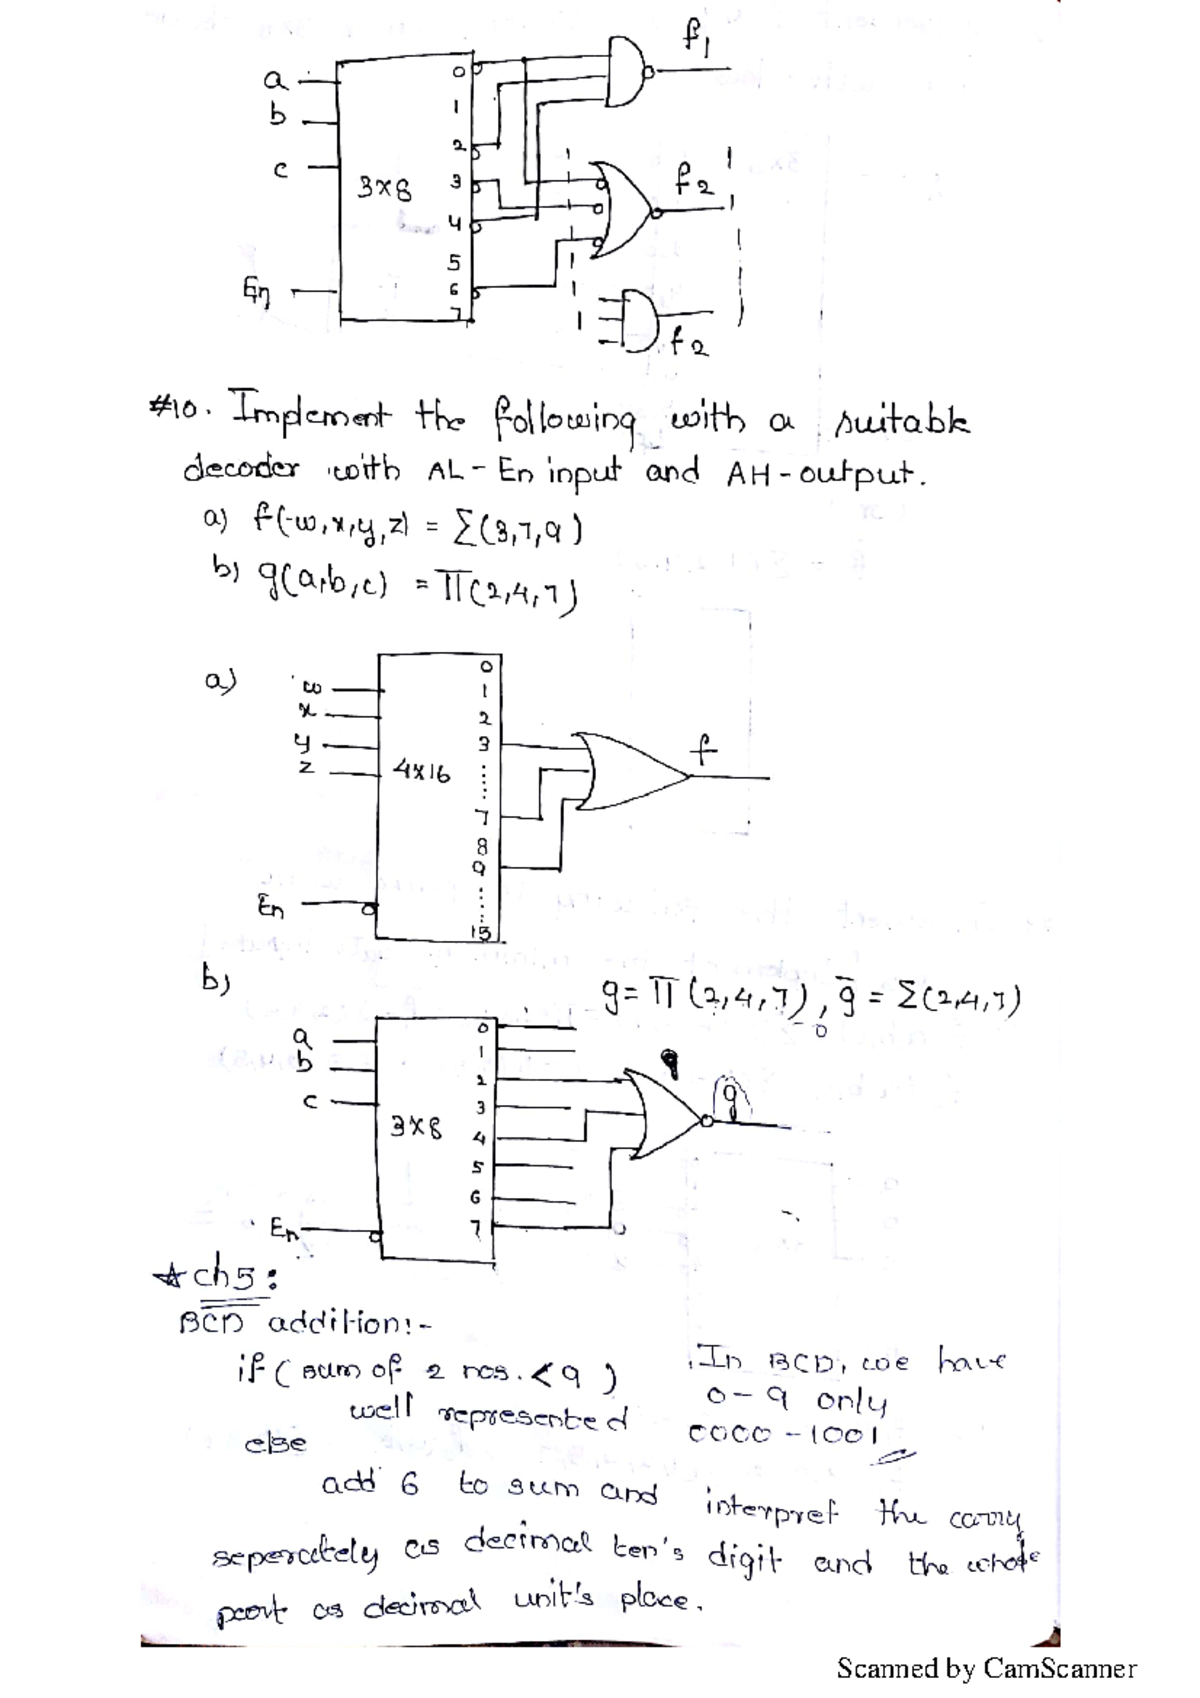 f1
a
0
b
1
2
c
3x8
3
f2
4
5
En
6
7
f2
#10. Implement the following with a suitable
decoder with AL-En input and AH-output.
a) f(w,x,y,z) = Σ(3,7,9)
b) g(a,b,c) = Π(2,4,7)
a)
0
w
1
x
2
y
3
f
z
4x16
7
8
9
En
15
b)
g = Π(2,4,7), g̅ = Σ(2,4,7)
0
a
1
b
2
g
c
3
3x8
4
5
6
En
7
☆ ch5:
BCD addition:-
if (sum of 2 nos. < 9)
In BCD, we have
0-9 only
well represented
0000 - 1001
else
add 6 to sum and interpret the carry
seperately as decimal ten's digit and the whole
part as decimal unit's place.
Scanned by CamScanner